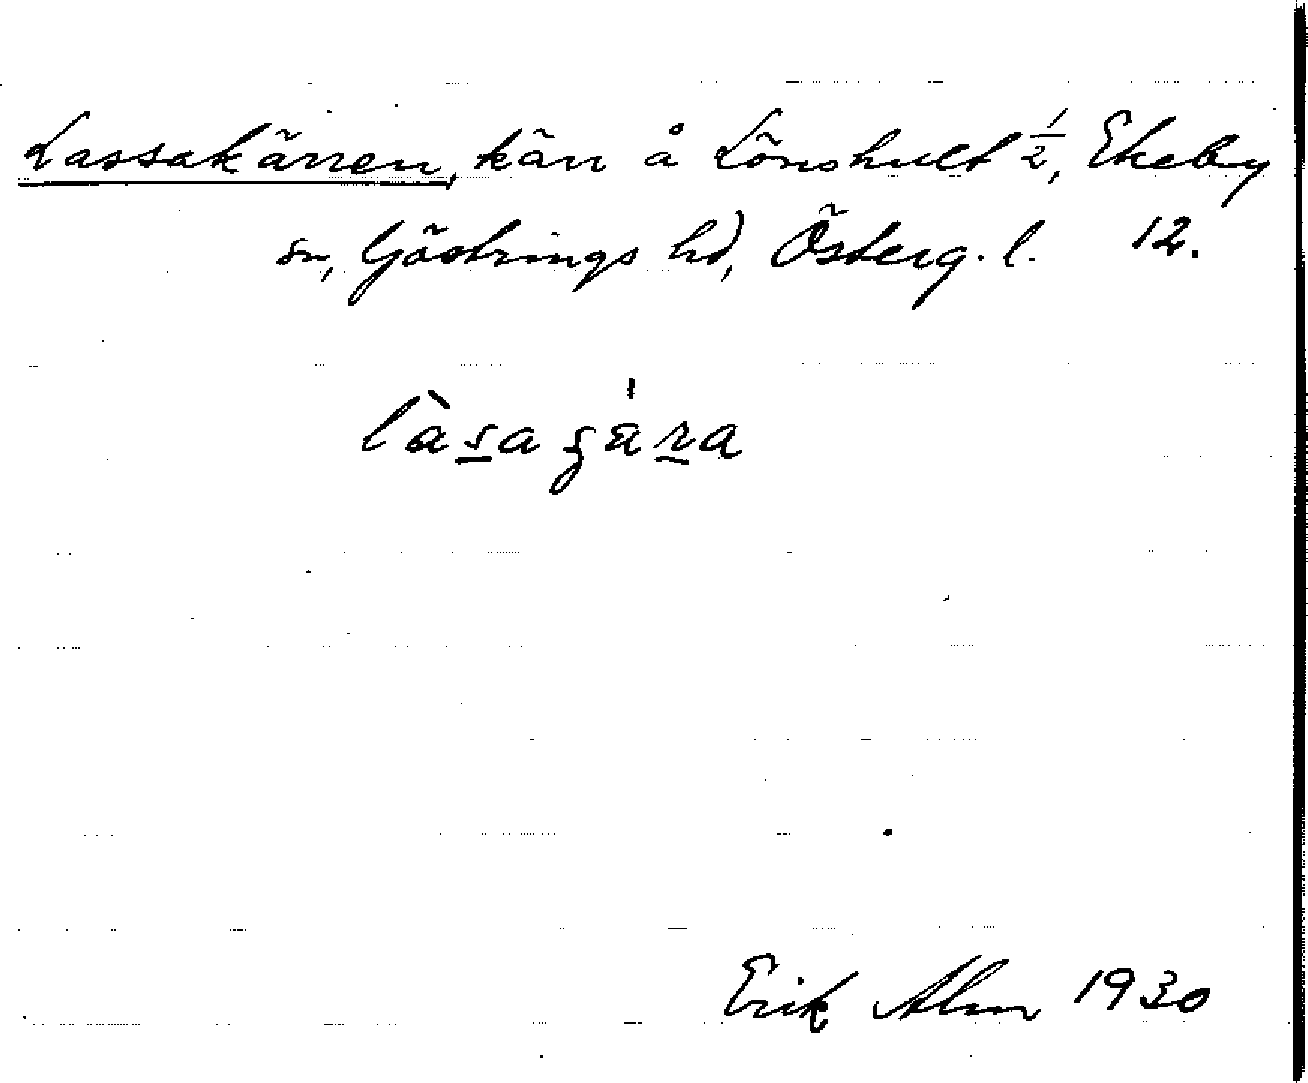 Lassakärren, kärr å Lönshult 1/2, Ekeby
sn, Göstrings hd, Österg. l. 12.
làsagára
Erik Alm 1930